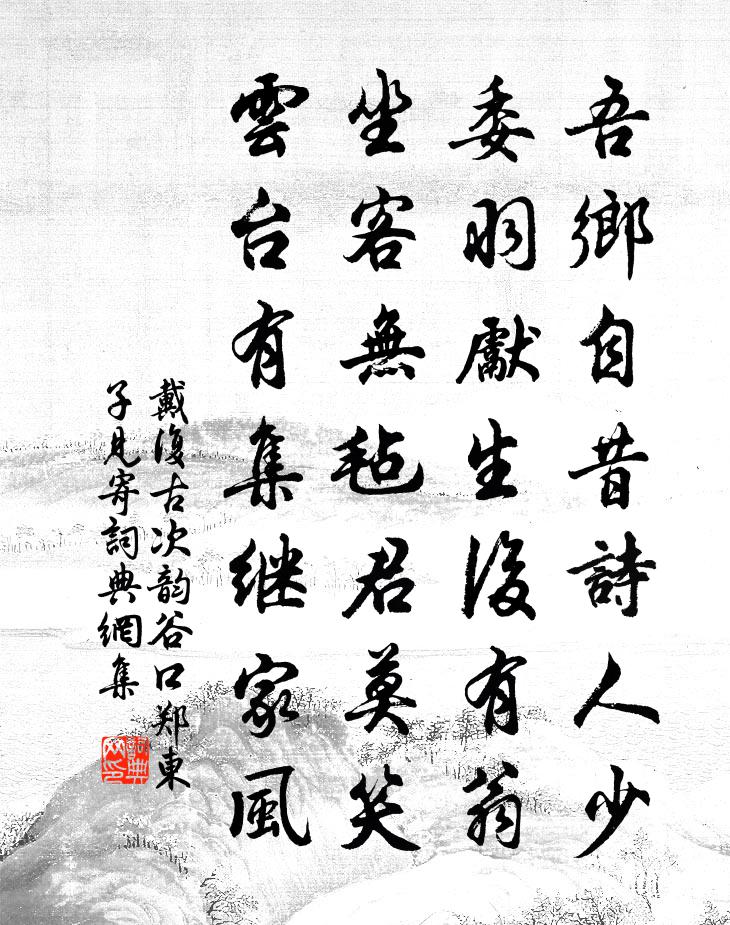 吾鄉自昔詩人少
委羽獻生後有翁
坐客無毡君莫笑
雲台有集继家風
戴復古次韵谷口郑東
子見寄詞典網集
詞典网印